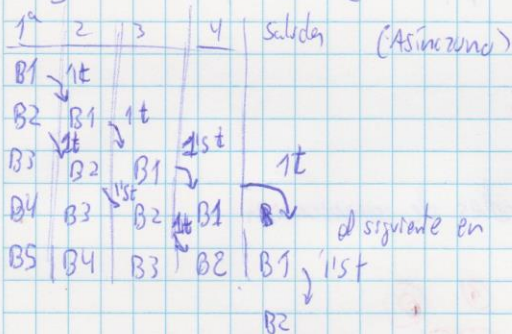 1ª 2 3 4 Salida (Asíncrono)
B1 1t
B2 B1 1t
1t 1'5t 1t
B3 B2 B1
1'5t
B4 B3 B2 1t B1 B el siguiente en
B5 B4 B3 B2 B1 1'5t
B2